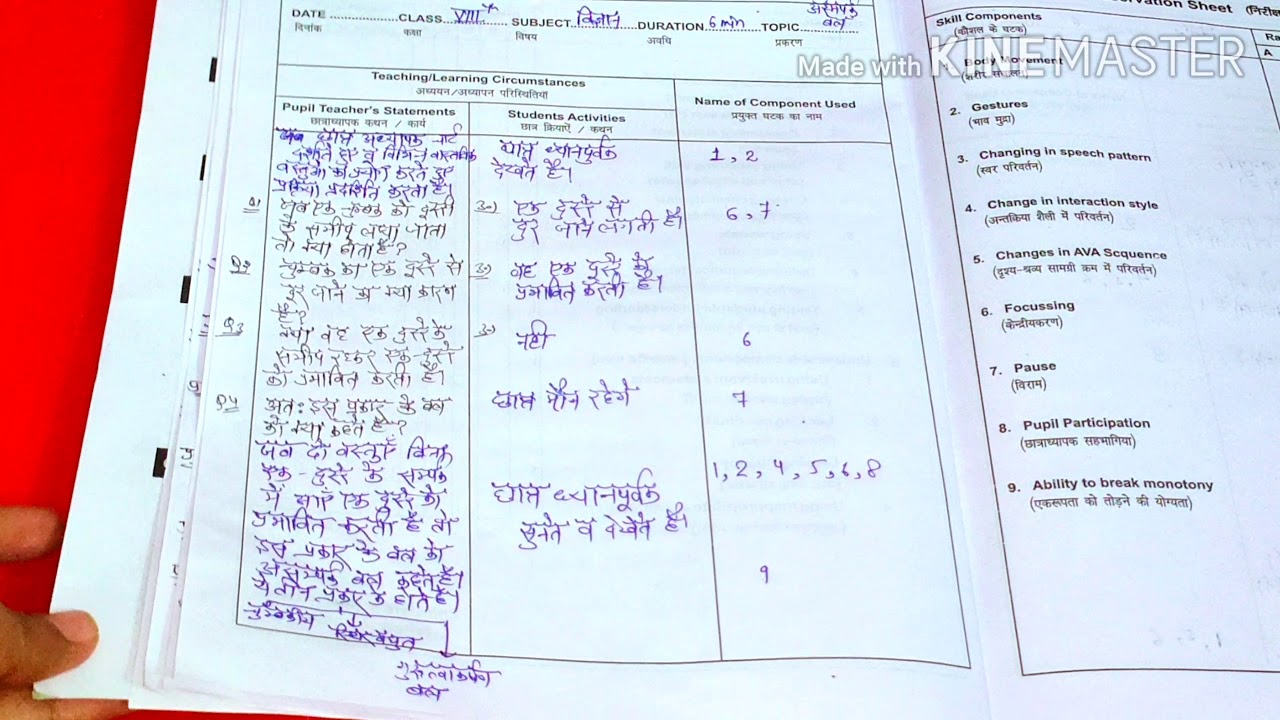 DATE ............CLASS VIII th SUBJECT विज्ञान DURATION 6 min TOPIC असम्पर्क बल
दिनांक कक्षा विषय अवधि प्रकरण
Made with KINEMASTER
Teaching/Learning Circumstances
अध्ययन/अध्यापन परिस्थितियां
Name of Component Used
प्रयुक्त घटक का नाम
Pupil Teacher's Statements
छात्राध्यापक कथन / कार्य
Students Activities
छात्र क्रियाएँ / कथन
वस्तुओं का प्रयोग करते हुए
प्रक्रिया प्रदर्शित करता है।
छात्र ध्यानपूर्वक
देखते है।
1, 2
Q1 जब एक चुम्बक को दूसरी
के समीप लाया जाता
तो क्या होता है?
उ०) एक दुसरे से
दुर जाने लगती है।
6, 7
Q2 चुम्बक का एक दुसरे से
दुर जाने का क्या कारण
है?
उ०) वह एक दुसरे को
प्रभावित करता है।
Q3 क्या वह एक दुसरे के
समीप रहकर एक-दुसरे
को प्रभावित करती है।
उ०) नही
6
Q4 अतः इस प्रकार के बल
को क्या कहते है?
छात्र मौन रहेगे
7
जब दो वस्तुएँ बिना
एक-दुसरे के सम्पर्क
में आए एक दुसरे को
प्रभावित करती है तो
इस प्रकार के बल को
असम्पर्क बल कहते है।
ये तीन प्रकार के होते है।
छात्र ध्यानपूर्वक
सुनते व देखते है।
1, 2, 4, 5, 6, 8
9
चुम्बकीय स्थिर वैधुत
गुरुत्वाकर्षण
बल
servation Sheet (निरीक्ष
Skill Components
(कौशल के घटक)
Ra
A
Body Movement
2. Gestures
(भाव मुद्रा)
3. Changing in speech pattern
(स्वर परिवर्तन)
4. Change in interaction style
(अन्तक्रिया शैली में परिवर्तन)
5. Changes in AVA Scquence
(दृश्य-श्रव्य सामग्री क्रम में परिवर्तन)
6. Focussing
(केन्द्रीयकरण)
7. Pause
(विराम)
8. Pupil Participation
(छात्राध्यापक सहभागिया)
9. Ability to break monotony
(एकरूपता को तोड़ने की योग्यता)